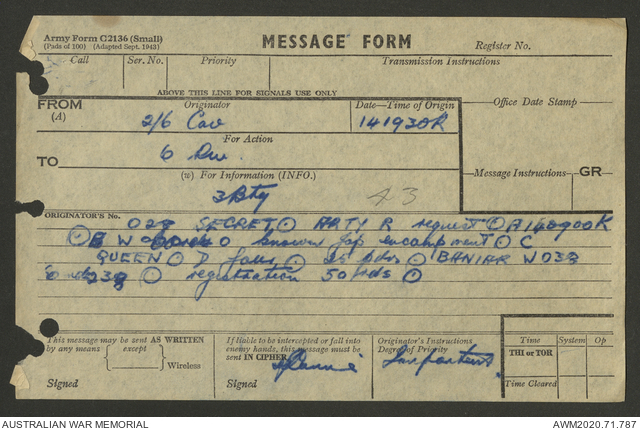 Army Form C2136 (Small)
(Pads of 100) (Adapted Sept. 1943)
MESSAGE FORM
Register No.
Call
Ser. No.
Priority
Transmission Instructions
ABOVE THIS LINE FOR SIGNALS USE ONLY
FROM
(A)
Originator
Date—Time of Origin
Office Date Stamp
2/6 Cav
141930K
For Action
TO
6 Div.
(w) For Information (INFO.)
Message Instructions
GR
3 Bty
43
ORIGINATOR'S No.
028 SECRET ARTY R request A 140900K
B W known Jap encampment C
QUEEN D 25 pdrs BANIAR W038
registration 50 rds
This message may be sent AS WRITTEN
by any means
except
Wireless
Signed
If liable to be intercepted or fall into
enemy hands, this message must be
sent IN CIPHER.
Signed
Originator's Instructions
Degree of Priority
Important
Time
System
Op
THI or TOR
Time Cleared
AUSTRALIAN WAR MEMORIAL
AWM2020.71.787